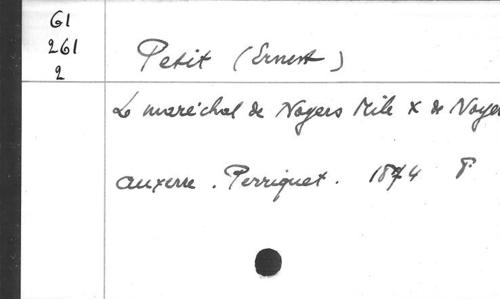 G1
261
2
Petit (Ernest)
Le maréchal de Noyers Mile X de Noyer
Auxerre. Perriquet. 1874 8°